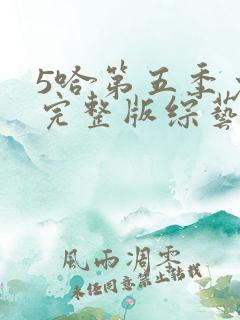 5哈第五季
完整版综藝
風雨凋零
未经同意禁止转载